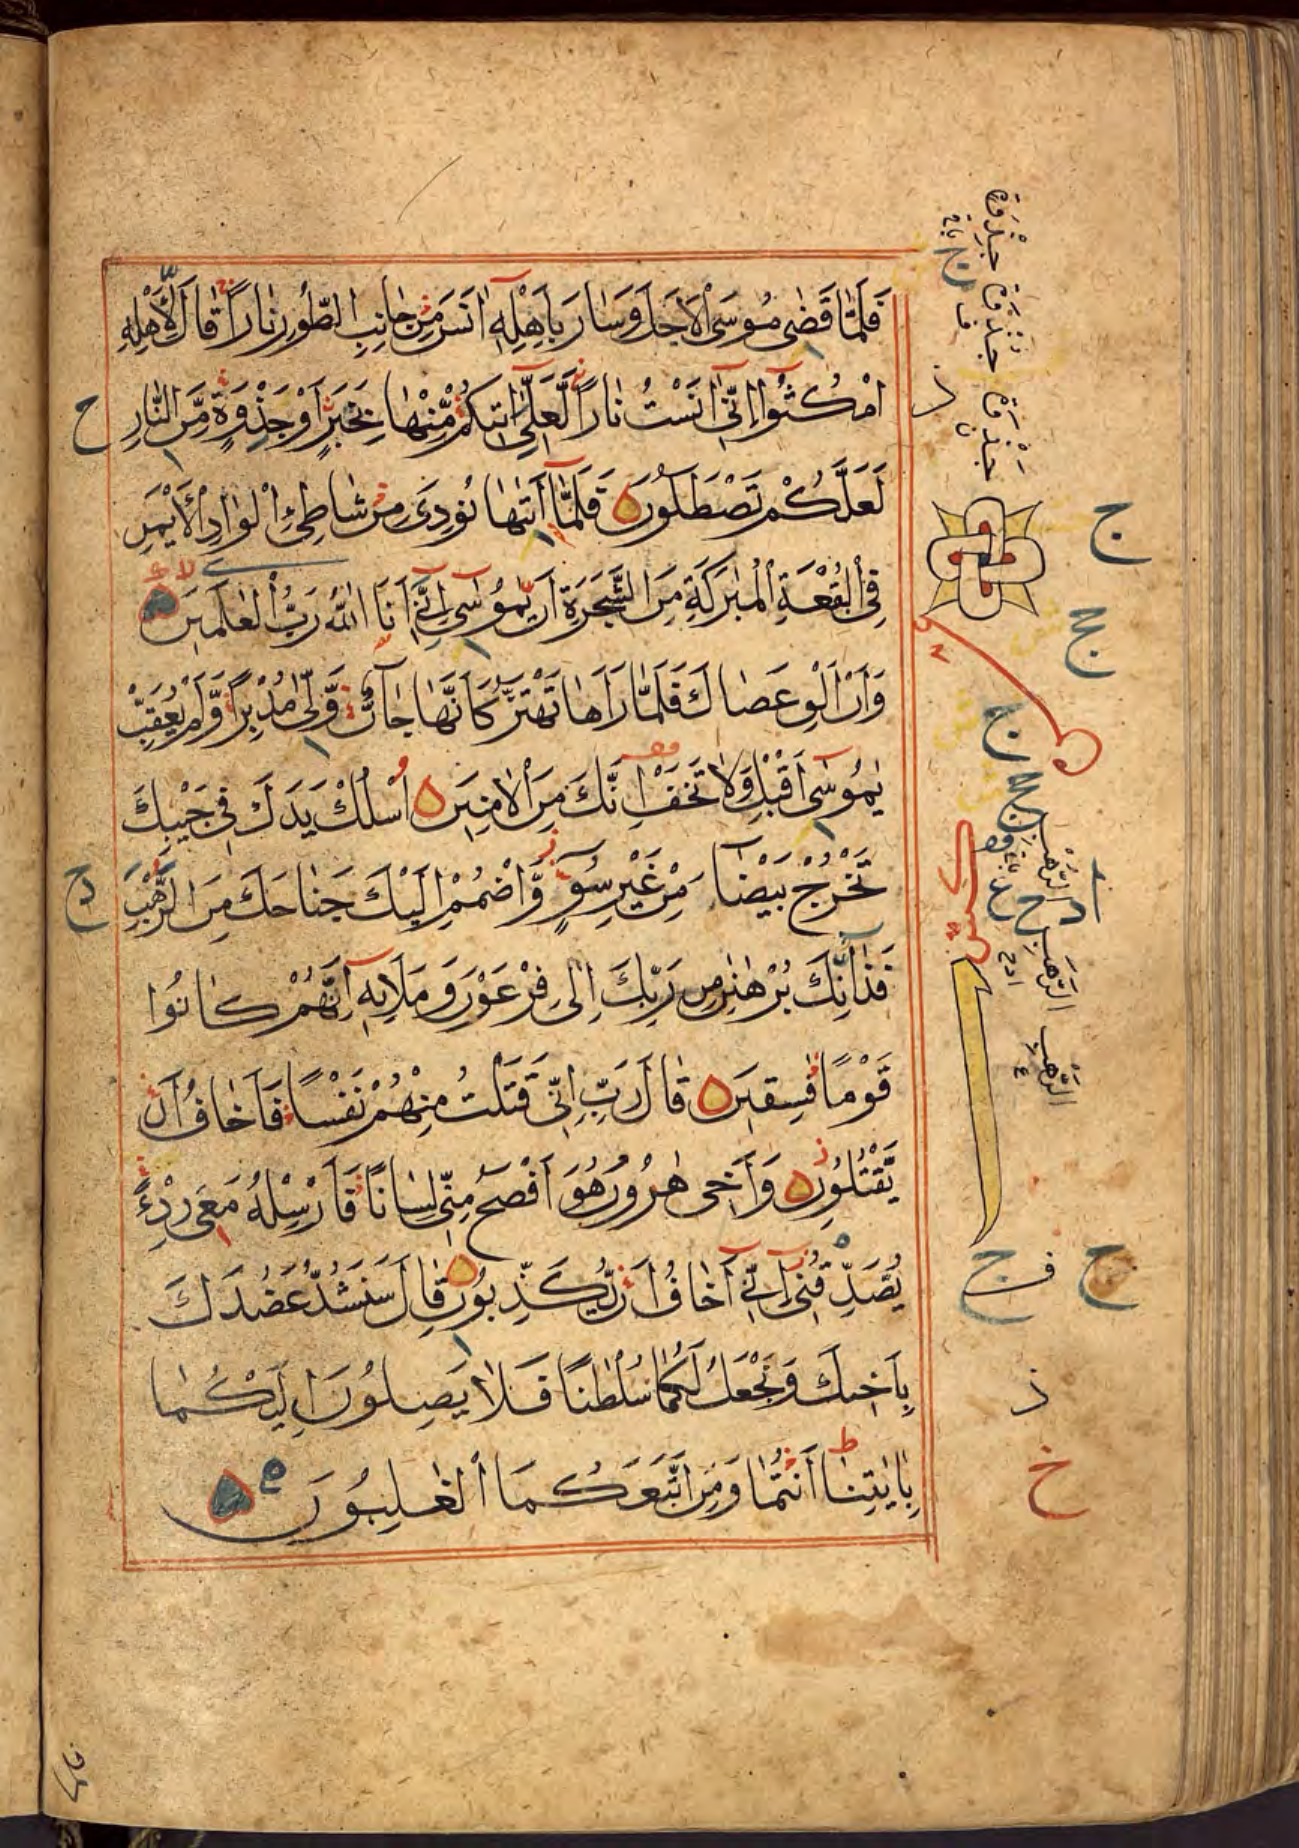 فَلَمَّا قَضٰى مُوسَى الْاَجَلَ وَسَارَ بِاَهْلِهٖٓ اٰنَسَ مِنْ جَانِبِ الطُّورِ نَارًا قَالَ لِاَهْلِهِ
امْكُثُوٓا اِنِّىٓ اٰنَسْتُ نَارًا لَّعَلِّىٓ اٰتِيكُمْ مِّنْهَا بِخَبَرٍ اَوْ جَذْوَةٍ مِّنَ النَّارِ
لَعَلَّكُمْ تَصْطَلُونَ فَلَمَّآ اَتٰىهَا نُودِىَ مِنْ شَاطِئِ الْوَادِ الْاَيْمَنِ
فِى الْبُقْعَةِ الْمُبٰرَكَةِ مِنَ الشَّجَرَةِ اَنْ يّٰمُوسٰٓى اِنِّىٓ اَنَا اللّٰهُ رَبُّ الْعٰلَمِينَ
وَاَنْ اَلْقِ عَصَاكَ فَلَمَّا رَاٰهَا تَهْتَزُّ كَاَنَّهَا جَآنٌّ وَّلّٰى مُدْبِرًا وَّلَمْ يُعَقِّبْ
يٰمُوسٰٓى اَقْبِلْ وَلَا تَخَفْ اِنَّكَ مِنَ الْاٰمِنِينَ اُسْلُكْ يَدَكَ فِى جَيْبِكَ
تَخْرُجْ بَيْضَآءَ مِنْ غَيْرِ سُوٓءٍ وَّاضْمُمْ اِلَيْكَ جَنَاحَكَ مِنَ الرَّهْبِ
فَذٰنِكَ بُرْهَانٰنِ مِنْ رَّبِّكَ اِلٰى فِرْعَوْنَ وَمَلَا۟ئِهٖٓ اِنَّهُمْ كَانُوا
قَوْمًا فٰسِقِينَ قَالَ رَبِّ اِنِّى قَتَلْتُ مِنْهُمْ نَفْسًا فَاَخَافُ اَنْ
يَّقْتُلُونِ وَاَخِى هٰرُونُ هُوَ اَفْصَحُ مِنِّى لِسَانًا فَاَرْسِلْهُ مَعِىَ رِدْءًا
يُّصَدِّقُنِىٓ اِنِّىٓ اَخَافُ اَنْ يُّكَذِّبُونِ قَالَ سَنَشُدُّ عَضُدَكَ
بِاَخِيكَ وَنَجْعَلُ لَكُمَا سُلْطٰنًا فَلَا يَصِلُونَ اِلَيْكُمَا
بِاٰيٰتِنَآ اَنْتُمَا وَمَنِ اتَّبَعَكُمَا الْغٰلِبُونَ
جَذْوَةٍ
الرَّهْبِ
الرَّهَبِ
الرَّهْبِ